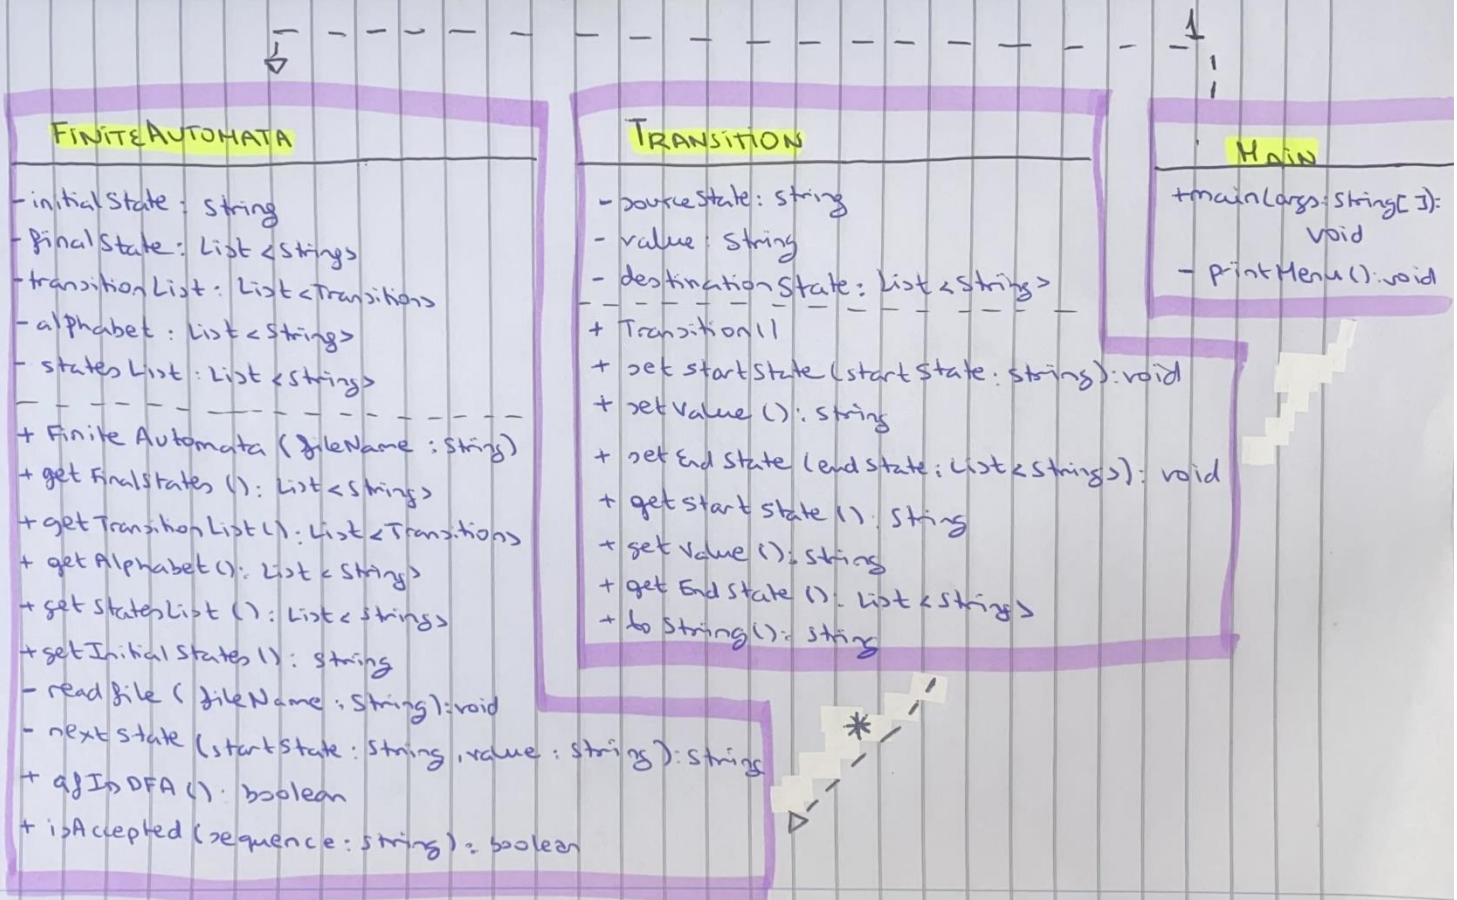 1
FINITEAUTOMATA
- initialState : String
- finalState : List <String>
- transitionList : List<Transition>
- alphabet : List <String>
- statesList : List <String>
+ Finite Automata (fileName : String)
+ getFinalStates () : List <String>
+ getTransitionList() : List <Transition>
+ getAlphabet() : List <String>
+ getStatesList () : List <String>
+ getInitialStates() : String
- readfile ( fileName : String) : void
- nextstate (startState : String , value : String ) : String
+ afIsDFA () : boolean
+ isAccepted (sequence : String) : boolean
TRANSITION
- sourceState : String
- value : String
- destinationState : List <String>
+ Transition()
+ set startState (startState : String) : void
+ setValue () : String
+ set End State (endState : List <String>) : void
+ get start State () : String
+ get Value () : String
+ get End State () : List <String>
+ to String() : String
MAIN
+main(args : String[ ]) :
void
- printMenu () : void
*